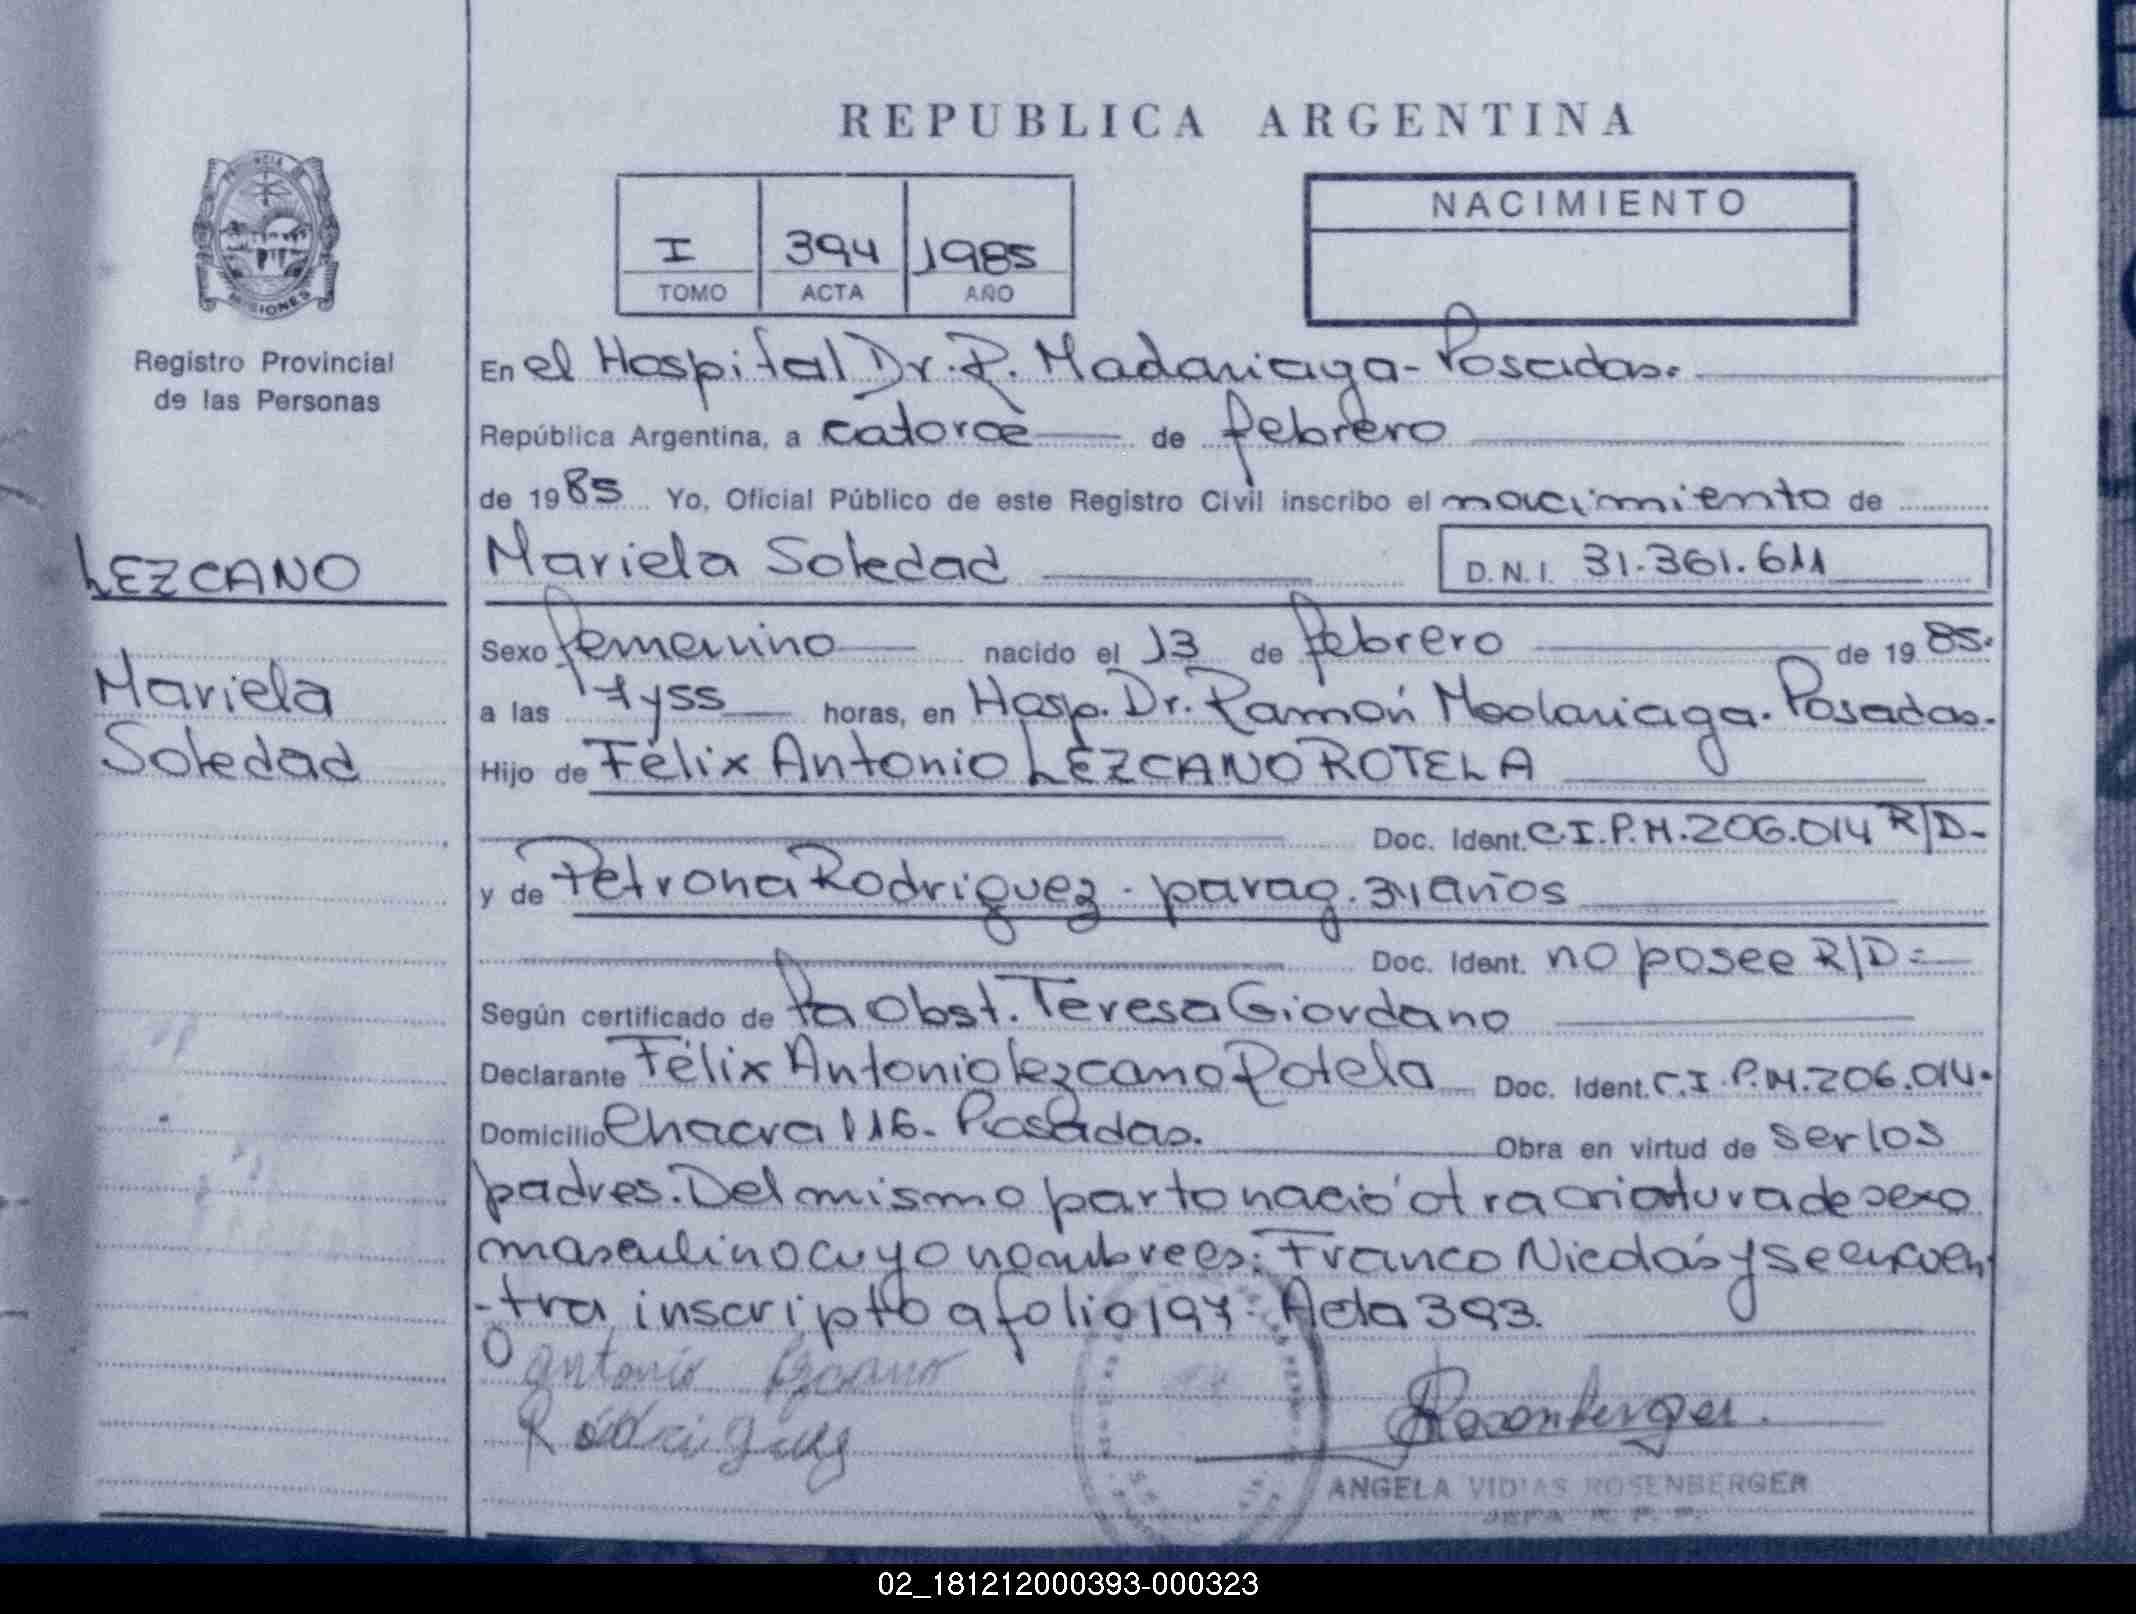 REPUBLICA ARGENTINA
I 394 1985
TOMO ACTA AÑO
NACIMIENTO
PROVINCIA
MISIONES
Registro Provincial
de las Personas
LEZCANO
Mariela
Soledad
En el Hospital Dr. R. Madariaga - Posadas.
República Argentina, a catorce de febrero
de 1985 Yo, Oficial Público de este Registro Civil inscribo el nacimiento de
Mariela Soledad D.N.I. 31.361.611
Sexo femenino nacido el 13 de febrero de 1985.
a las 7y55 horas, en Hosp. Dr. Ramón Madariaga. Posadas.
Hijo de Félix Antonio LEZCANO ROTELA
Doc. Ident. C.I.P.M. 206.014 R/D-
y de Petrona Rodriguez - parag. 34 años
Doc. Ident. no posee R/D=
Según certificado de la Obst. Teresa Giordano
Declarante Félix Antonio lezcano Rotela Doc. Ident. C.I.P.M. 206.014.
Domicilio Chacra 116 - Posadas. Obra en virtud de ser los
padres. Del mismo parto nació otra criatura de sexo
masculino cuyo nombre es: Franco Nicolás y se encuen
-tra inscripto a folio 197 - Acta 393.
Antonio Lezcano
Rodriguez
Rosenberger
ANGELA VIDIAS ROSENBERGER
02_181212000393-000323